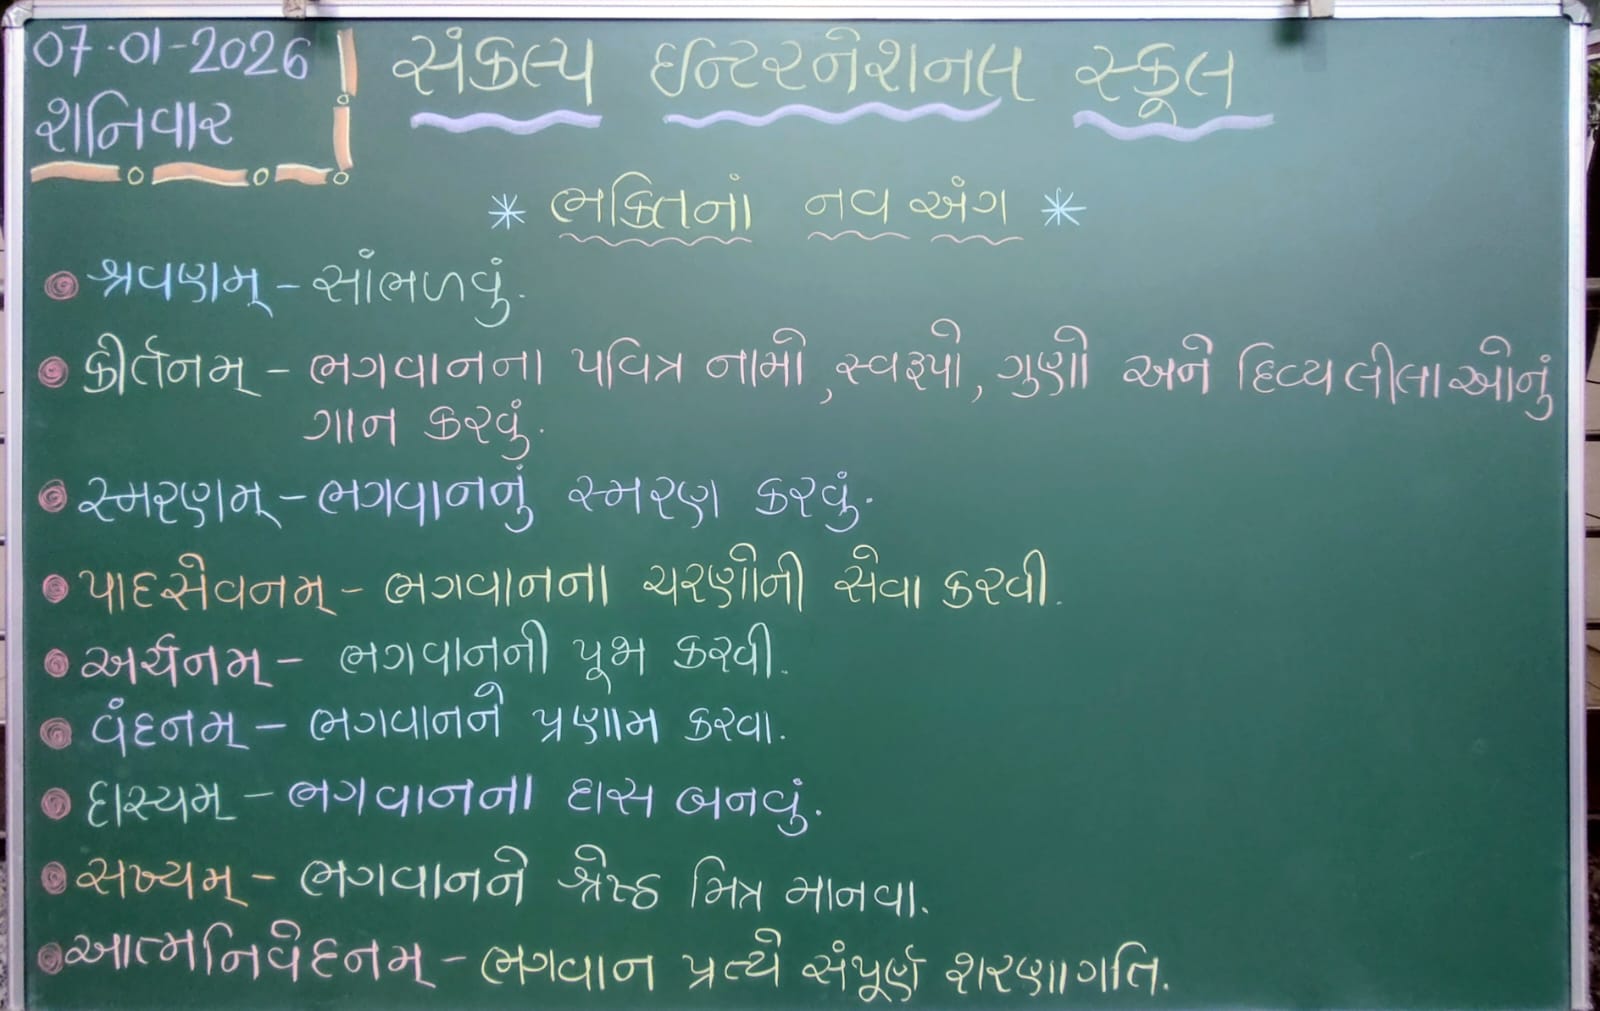 07-01-2026
શનિવાર
સંકલ્પ ઇન્ટરનેશનલ સ્કૂલ
* ભક્તિનાં નવ અંગ *
શ્રવણમ્ - સાંભળવું.
કીર્તનમ્ - ભગવાનના પવિત્ર નામો, સ્વરૂપો, ગુણો અને દિવ્ય લીલાઓનું
ગાન કરવું.
સ્મરણમ્ - ભગવાનનું સ્મરણ કરવું.
પાદસેવનમ્ - ભગવાનના ચરણોની સેવા કરવી.
અર્ચનમ્ - ભગવાનની પૂજા કરવી.
વંદનમ્ - ભગવાનને પ્રણામ કરવા.
દાસ્યમ્ - ભગવાનના દાસ બનવું.
સખ્યમ્ - ભગવાનને શ્રેષ્ઠ મિત્ર માનવા.
આત્મનિવેદનમ્ - ભગવાન પ્રત્યે સંપૂર્ણ શરણાગતિ.